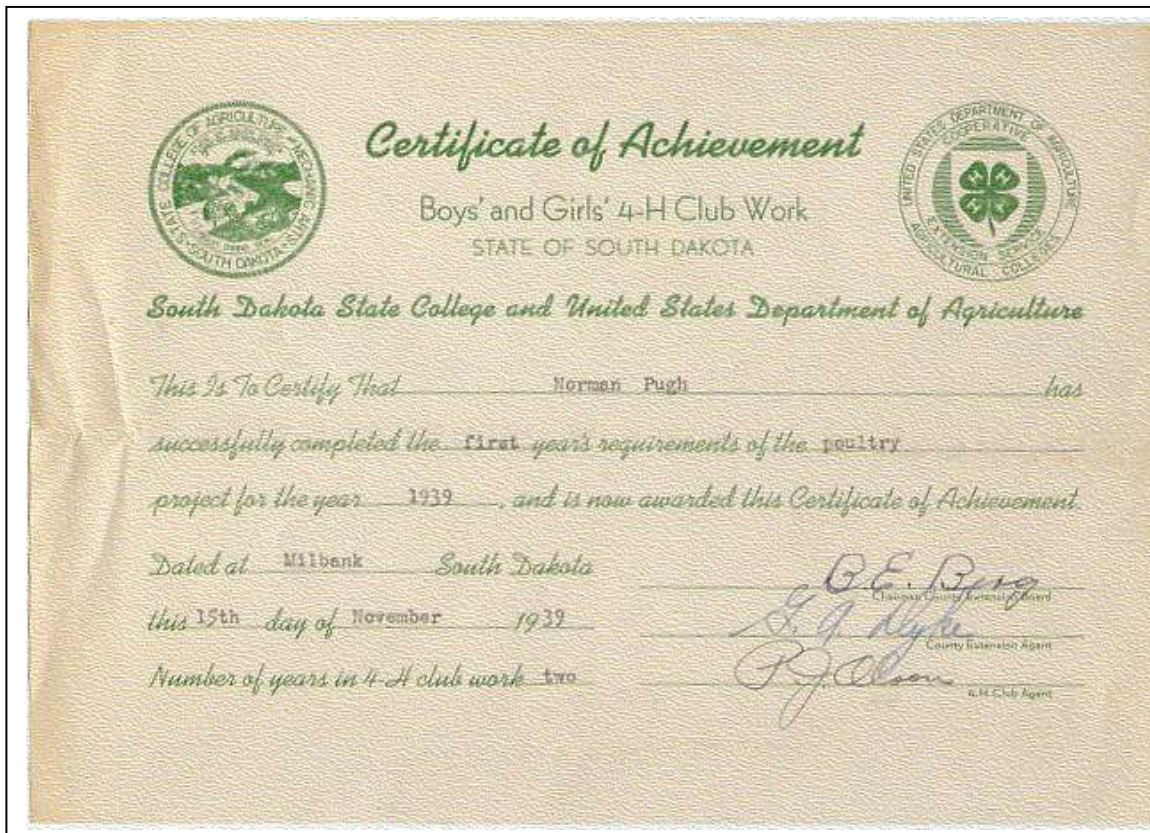 STATE COLLEGE OF AGRICULTURE MECHANIC ARTS SOUTH DAKOTA
Certificate of Achievement
Boys' and Girls' 4-H Club Work
STATE OF SOUTH DAKOTA
UNITED STATES DEPARTMENT OF AGRICULTURE
COOPERATIVE
H H
H H
EXTENSION SERVICE
AGRICULTURAL COLLEGES
South Dakota State College and United States Department of Agriculture
This Is To Certify That Norman Pugh has
successfully completed the first year's requirements of the poultry
project for the year 1939, and is now awarded this Certificate of Achievement.
Dated at Milbank South Dakota
B.E. Berg
Chairman County Extension Board
this 15th day of November 1939
G. A. Dyke
County Extension Agent
Number of years in 4-H club work two
P. J. Olson
4-H Club Agent